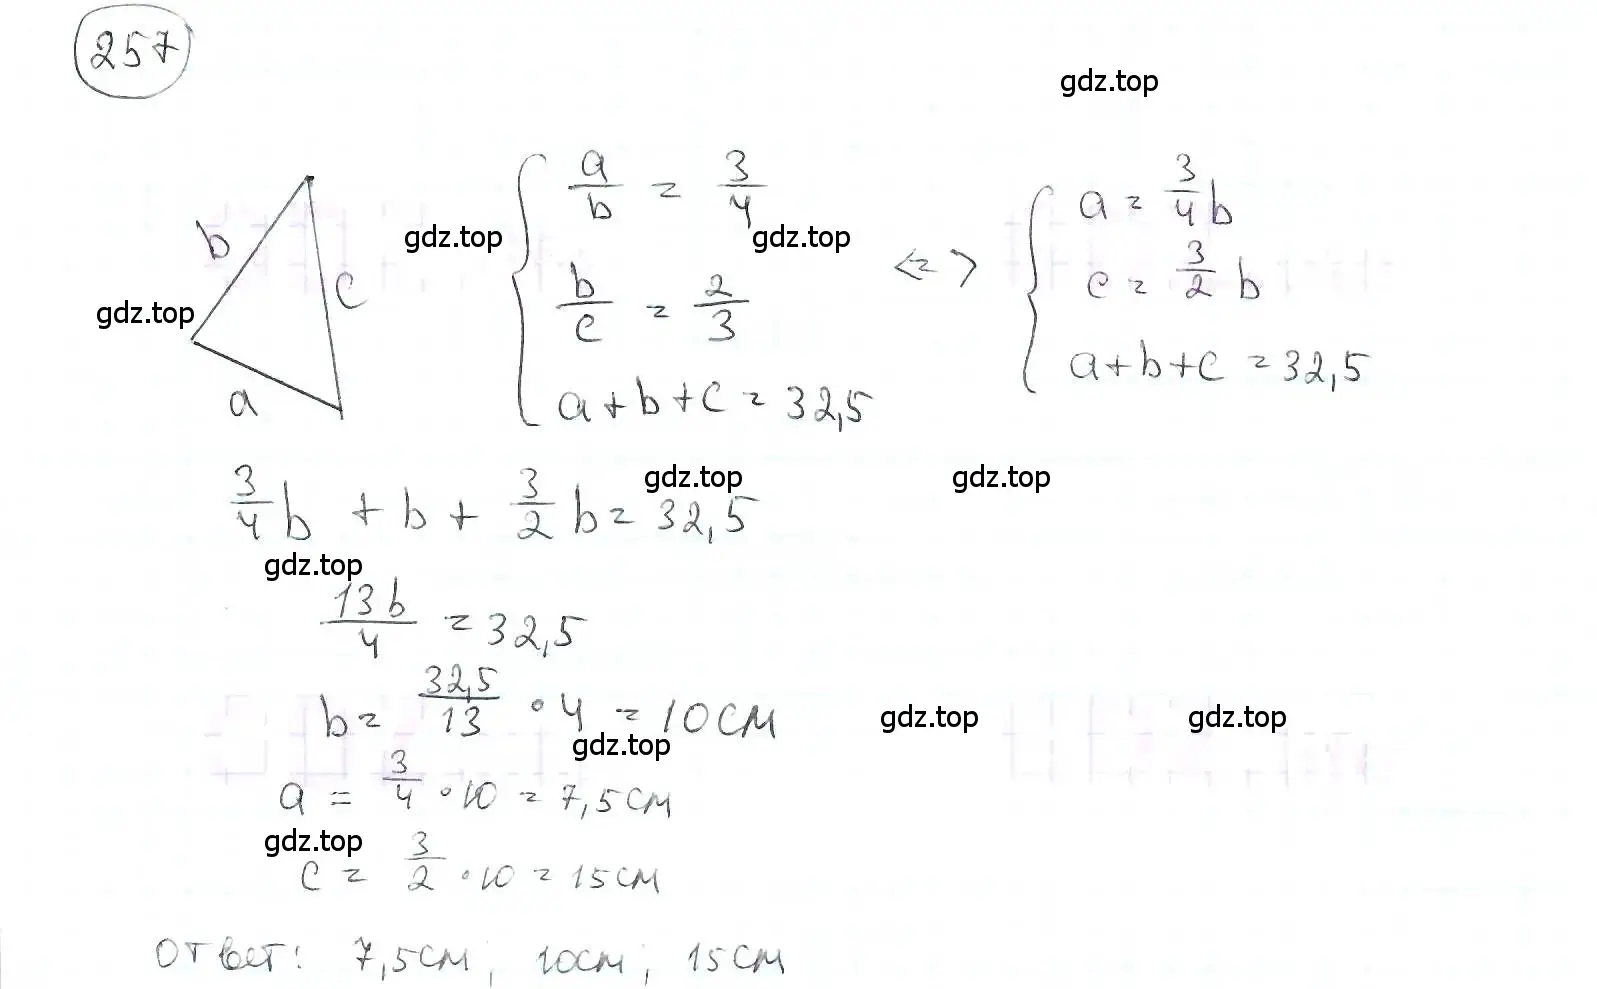 257
gdz.top
a/b = 3/4
a = 3/4 b
b
gdz.top
gdz.top
<=>
c = 3/2 b
c
b/c = 2/3
gdz.top
a
a+b+c = 32,5
a+b+c = 32,5
gdz.top
gdz.top
3/4 b + b + 3/2 b = 32,5
gdz.top
13b/4 = 32,5
b = 32,5/13 · 4 = 10см
gdz.top
gdz.top
gdz.top
a = 3/4 · 10 = 7,5см
gdz.top
c = 3/2 · 10 = 15см
Ответ: 7,5см; 10см; 15см